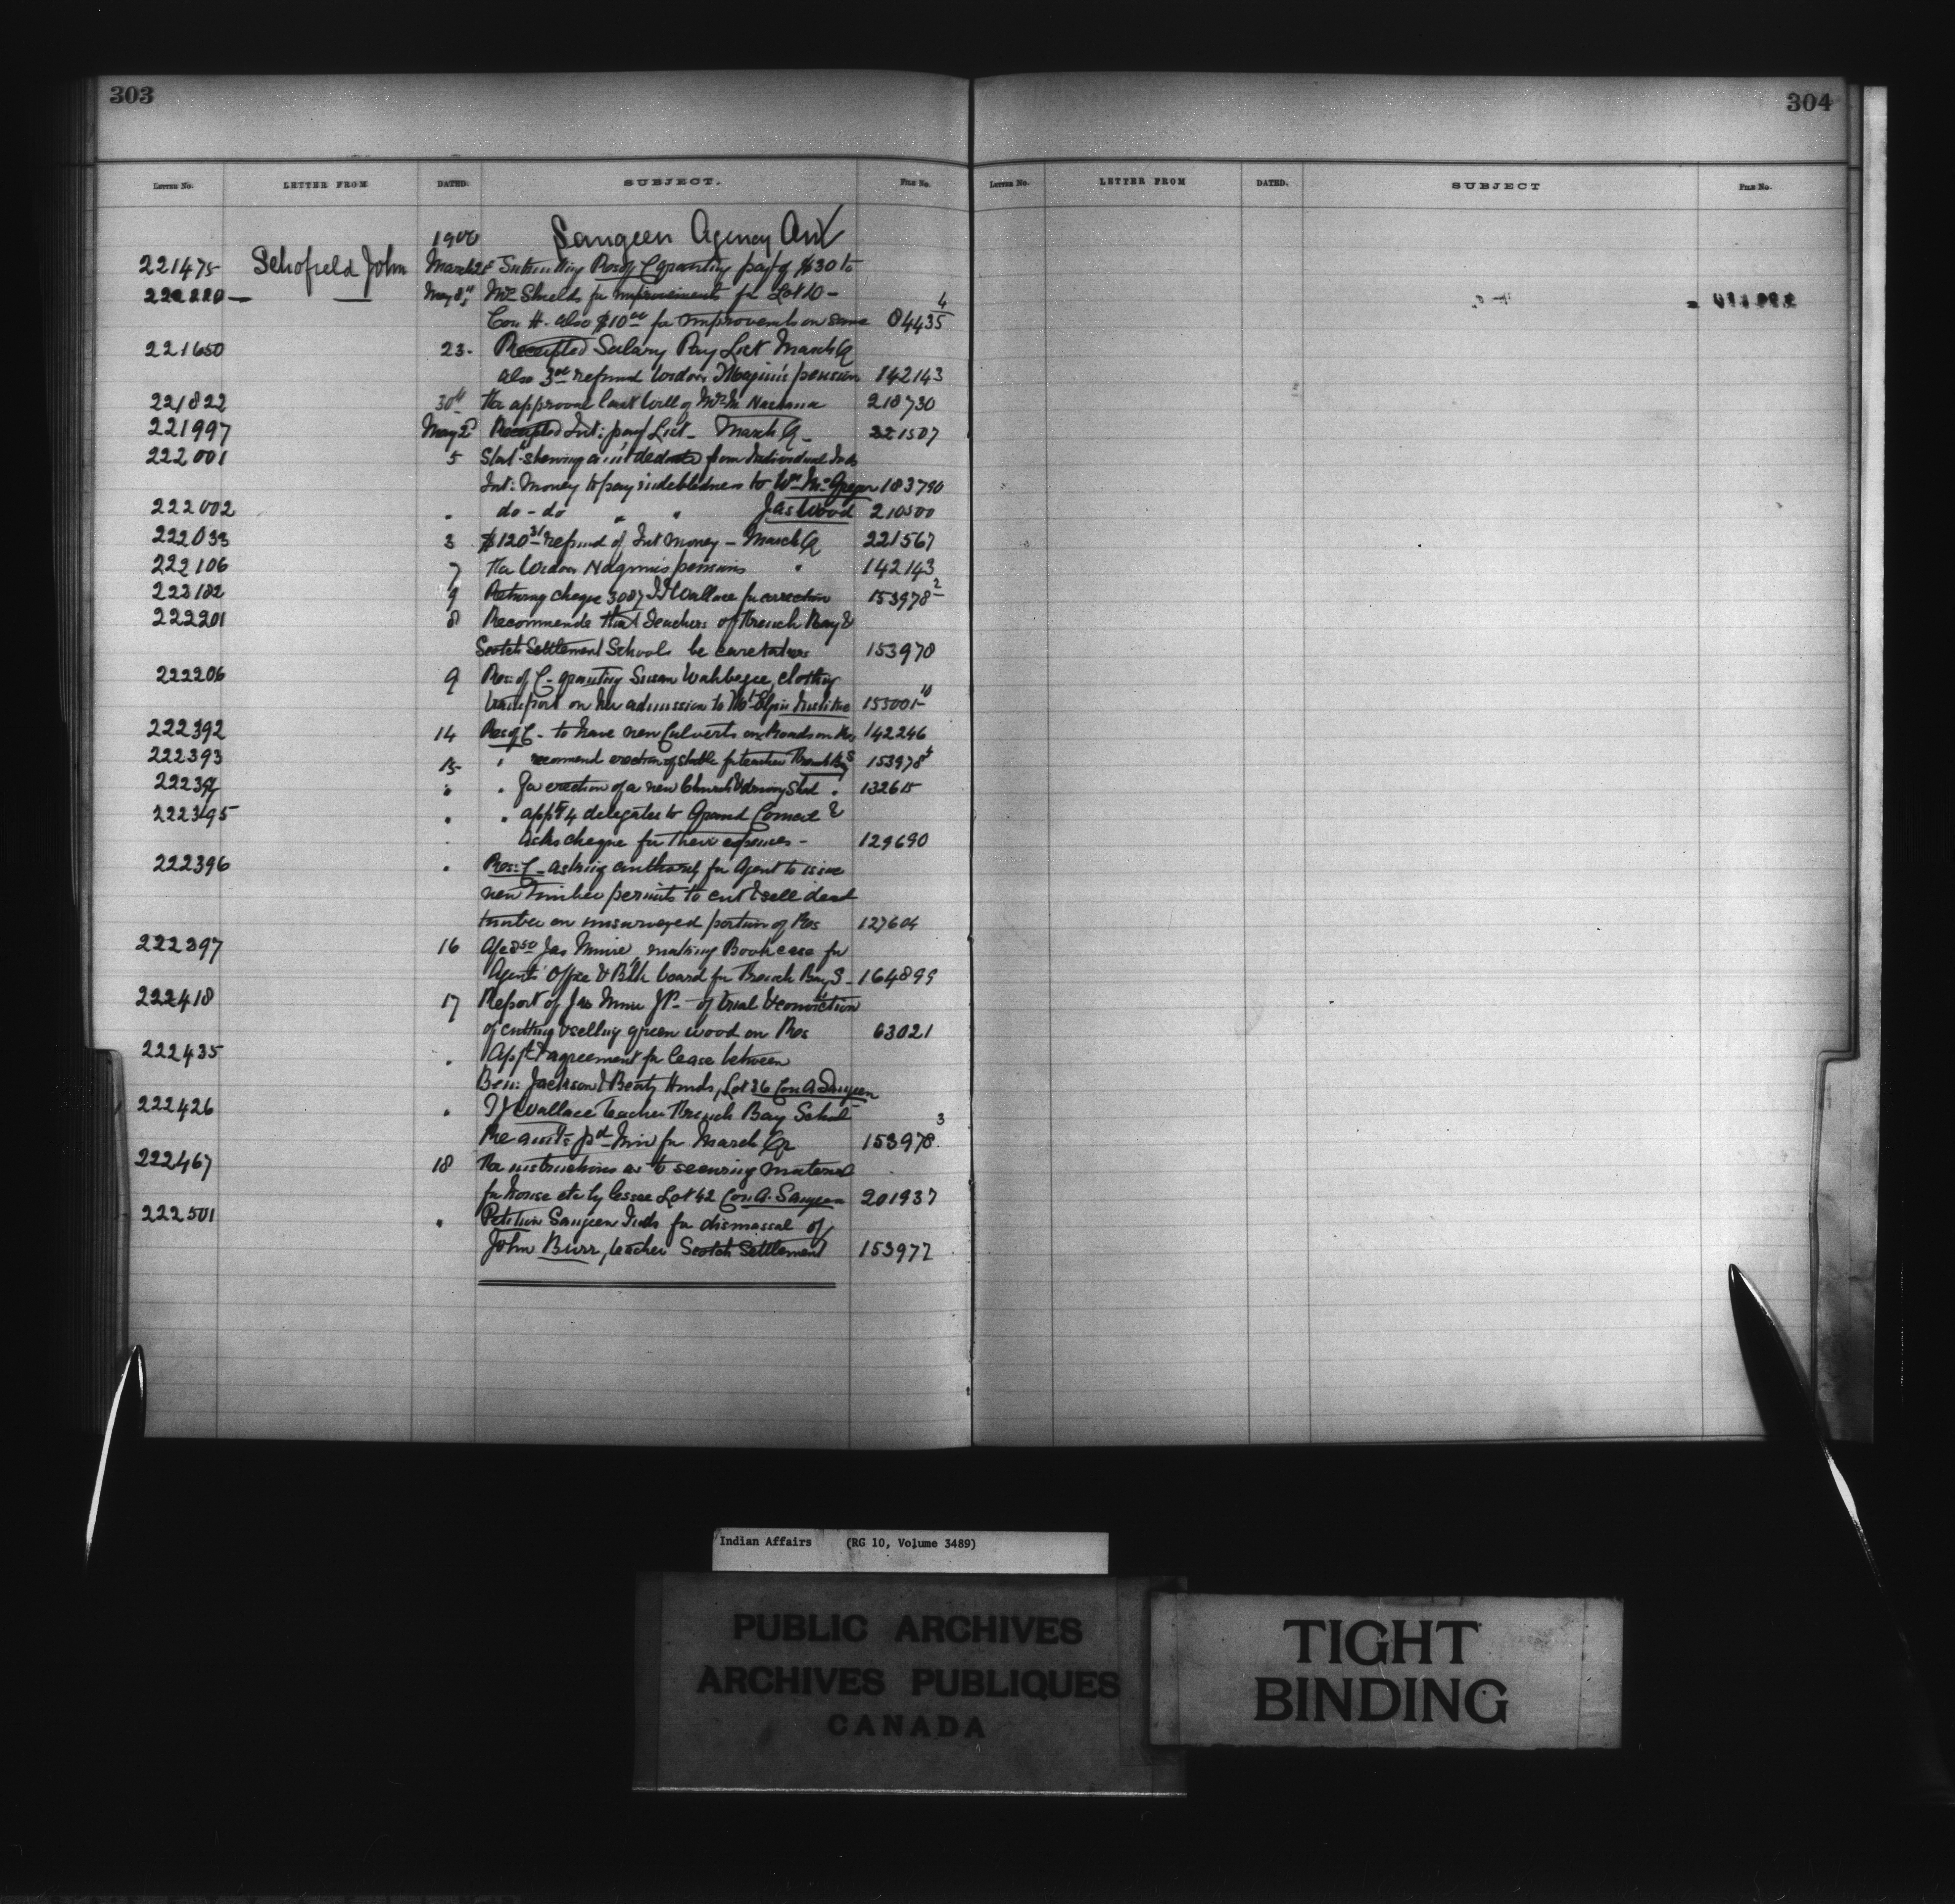 303
304
LETTER NO. LETTER FROM DATED. SUBJECT. FILE NO.
LETTER NO. LETTER FROM DATED. SUBJECT FILE NO.
1900 Saugeen Agency Ont
221475 Schofield John March 28 Submitting Res of C granting pay't of $30 to
222220 — May 8" Mr Shields for improvements for Lot 10 –
Con H. also $10 00 for improvements on same 84435 4
221650 23. Receipted Salary Pay List March Q
also 3rd refund Widow pension 142143
221822 30th Re approval last Will of Nachana 210730
221997 May 2d Receipted Int: pay List – March Q – 221507
222001 5 Stat. shewing am't deducted from Individual Inds
Int: Money to pay indebtedness to Wm McGregor 183790
222002 " do – do " " Jas Wood 210500
222033 3 $120 31 refund of Int money – March Q 221567
222106 7 Re Widow pensions " 142143
222182 9 Returning cheque 3087 Wallace for correction 153978 2
222201 8 Recommends that Teachers of French Bay &
Scotch Settlement Schools be caretakers 153970
222206 9 Res: of C – granting Susan Wahbezee, clothing
transport on her admission to Mt Elgin Institute 155001 10
222392 14 Res of C – to have new Culverts on Roads on Res 142246
222393 15 " recommend erection of stable for teacher French Bay S 153978 4
222394 " " for erection of a new Church & driving Shed . 132615
222395 " " app't 4 delegates to Grand Council &
asks cheque for their expenses – 129690
222396 " Res: C – asking authority for Agent to issue
new timber permits to cut & sell dead
timber on unsurveyed portion of Res 127604
222397 16 A/c 8 50 Jas making Bookcase for
Agents' Office & Blk board for French Bay S – 164899
222418 17 Report of Jas JP – of trial & conviction
of cutting & selling green wood on Res 63021
222435 " App't & agreement for lease between
Ben: Jackson & Beaty Hinds, Lot 26 Con A Saugeen
222426 " Wallace Teacher French Bay School
Re am'ts pd him for March Qr 153978 3
222467 18 Re instructions as to securing material
for house etc by lessee Lot 42 Con A. Saugeen 201937
222501 " Petition Saugeen Inds for dismissal of
John Burr, teacher Scotch Settlement 153977
Indian Affairs (RG 10, Volume 3489)
PUBLIC ARCHIVES
ARCHIVES PUBLIQUES
CANADA
TIGHT
BINDING